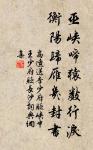 巫峽啼猿數行淚
衡陽歸雁幾封書
高適送李少府貶峽中
王少府貶長沙詞典網
集